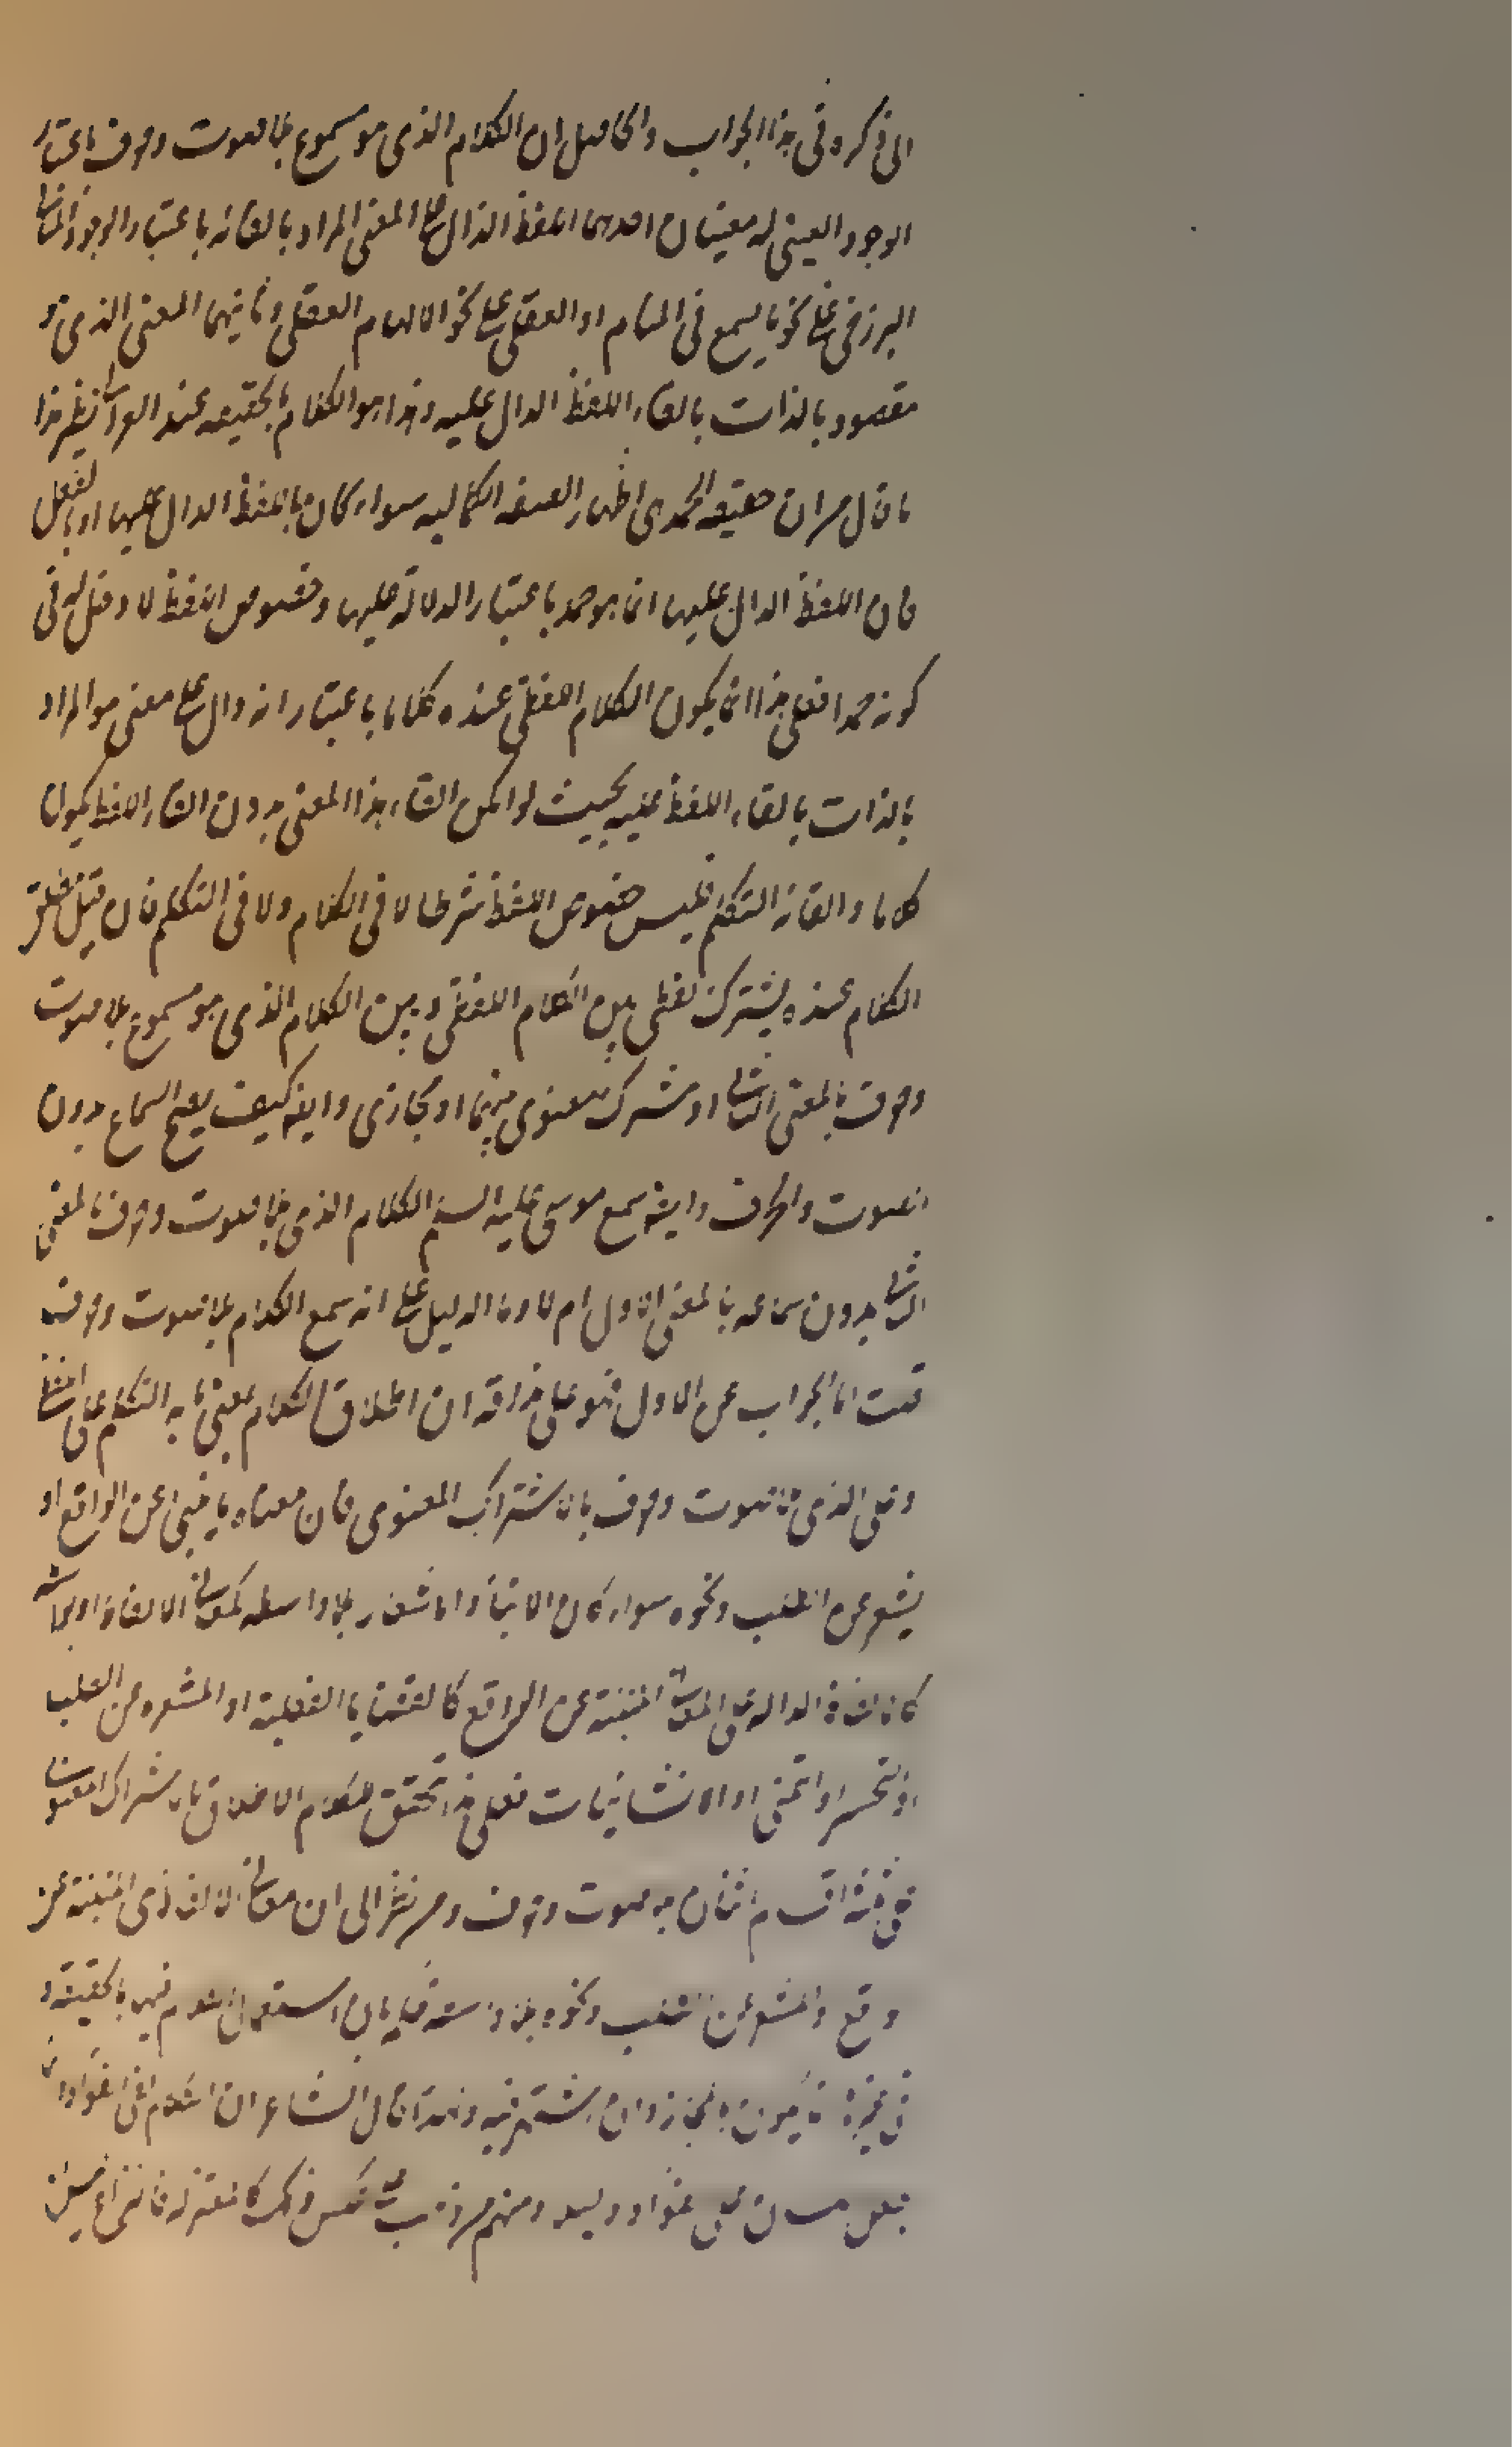 الى ذكره فى هذا الجواب والحاصل ان الكلام الذى هو مسموع بلا صوت وحرف باعتبار
الوجود العينى له معنيان احدهما اللفظ الدال على المعنى المراد بالقائه باعتبار الوجود المثالى
البرزخى على نحو ما يسمع فى المنام او العقلى على نحو الالهام العقلى وثانيهما المعنى الذى هو
مقصود بالذات بالقاء اللفظ الدال عليه وهذا هو الكلام بالحقيقه عند العوالى نظير هذا
ما قال من ان حقيقه الحمد هى اظهار الصفه الكماليه سواء كان باللفظ الدال عليها او بالفعل
فان اللفظ الدال عليها انما هو حمد باعتبار الدلالة عليها وخصوص اللفظ لا دخل له فى
كونه حمدا فعلى هذا انما يكون الكلام اللفظى عنده كلاما باعتبار انه دال على معنى هو المراد
بالذات بالقاء اللفظ عليه بحيث لو امكن القاء هذا المعنى بدون القاء اللفظ يكون
كلاما والقائه التكلم فليس خصوص اللفظ شرطا لا فى الكلام ولا فى التكلم فان قيل فلفظ
الكلام عنده مشترك لفظى بين الكلام اللفظى وبين الكلام الذى هو مسموع بلا صوت
وحرف بالمعنى الثانى او مشترك معنوى بينهما او مجازى وايضا كيف يصح السماع بدون
الصوت والحرف وايضا سمع موسى عليه السلم الكلام الذى بلا صوت وحرف بالمعنى
الثانى بدون سماعه بالمعنى الاول ام لا وما الدليل على انه سمع الكلام بلا صوت وحرف
قلت اما الجواب عن الاول فهو على مذاقه ان اطلاق الكلام بمعنى ما به التكلم على اللفظى
وعلى الذى بلا صوت وحرف بالاشتراك المعنوى فان معناه ما ينبئ عن الواقع او
يشعر عن الطلب ونحوه سواء كان الانباء والاشعار بلا واسطه كمعانى الالفاظ او بواسطه
كالالفاظ الدالة على المعانى المنبئة عن الواقع كالقضايا العقلية او المشعره عن الطلب
او التحسر او التمنى او الانشائيات فعلى هذا تحقق للكلام الاطلاق بالاشتراك المعنوى
على ثلثة اقسام اثنان بلا صوت وحرف ومن نظر الى ان معانى الالفاظ هى المنبئة عن
الواقع والمشعر عن الطلب ونحوه بلا واسطه قايل بان استعمال الكلام فيها بالحقيقة و
فى غيرها يكون بالمجاز وان اشتهر فيه ولهذا قال الشاعر ان الكلام لفى الفؤاد وانما
جعل اللسان على الفؤاد دليلا ومنهم من ذهب على عكس ذلك كالمعتزله